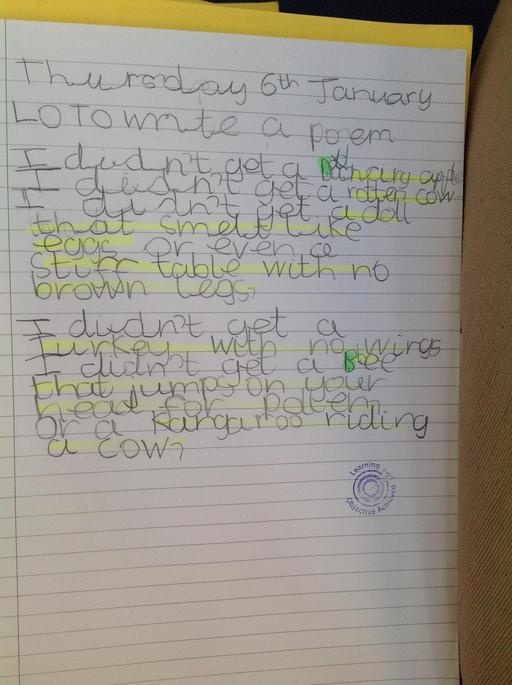 Thursday 6th January
LO TO write a poem
I didn't get a dancing apple
I didn't get a rotten cow
I didn't get a doll
that smelt like
eggs or even a
stiff table with no
brown legs,
I didn't get a
Turkey with no wings
I didn't get a Bee
that jumps on your
head for pollen,
Or a kangaroo riding
a cow,
Learning
Objective Achieved